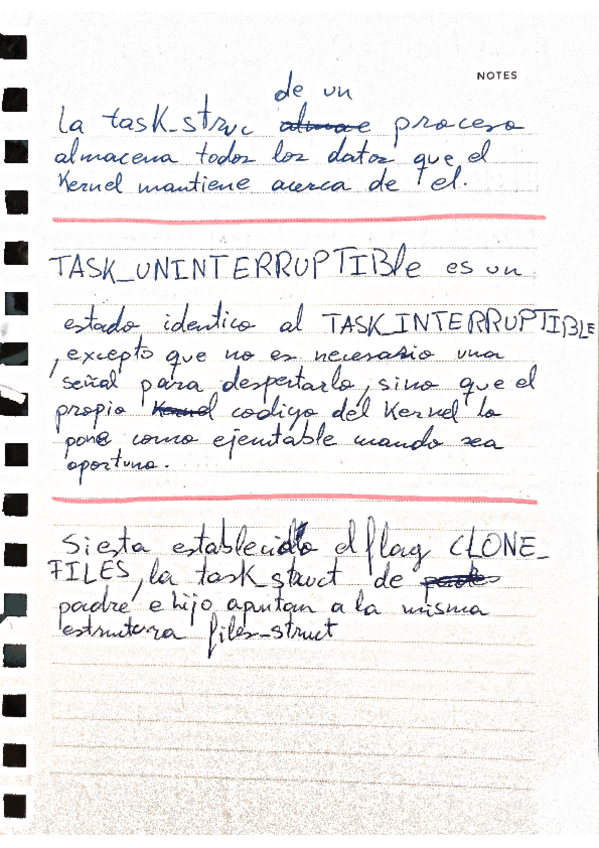 NOTES
de un
La task_struc proceso
almacena todos los datos que el
Kernel mantiene acerca de el.
TASK_UNINTERRUPTIBle es un
estado identico al TASK_INTERRUPTIBLE
, excepto que no es necesario una
señal para despertarlo, sino que el
propio Kernel codigo del Kernel lo
pone como ejecutable cuando sea
oportuno.
Si esta establecido el flag CLONE_
FILES, la task_struct de padre
padre e hijo apuntan a la misma
estructura files_struct